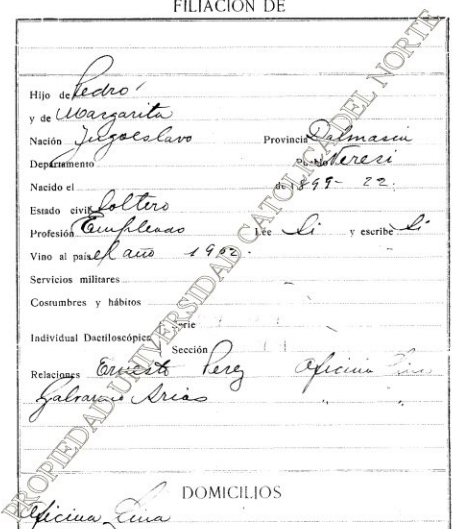 FILIACION DE
Hijo de Pedro
y de Margarita
Nación Jugoeslavo Provincia Dalmasia
Departamento Pueblo Neresi
Nacido el de 1899 - 22.
Estado civil Soltero
Profesión Empleado Lee Si y escribe Si
Vino al país el año 1902.
Servicios militares
Costumbres y hábitos
Individual Dactiloscópica Serie
Sección
Relaciones Ernesto Perez Oficina Lina
Galvarino Arias " "
DOMICILIOS
Oficina Lina
PROPIEDAD UNIVERSIDAD CATOLICA DEL NORTE